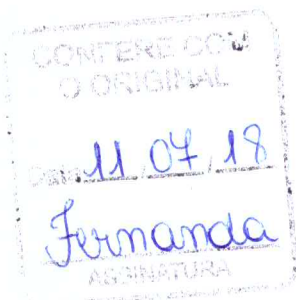 CONFERE COM
O ORIGINAL
DATA 11/07/18
Fernanda
ASSINATURA